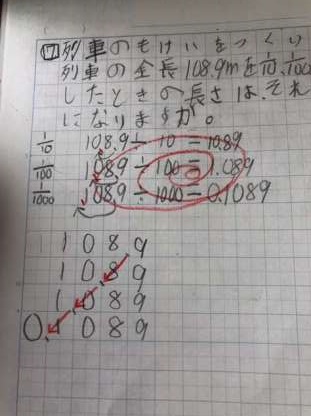 17 列車のもけいをつくり
列車の全長108.9mを1/10、1/100
したときの長さは、それ
になりますか。
1/10 108.9÷10=10.89
1/100 1089÷100=1.089
1/1000 1089÷1000=0.1089
1089
1089
1089
0.1089